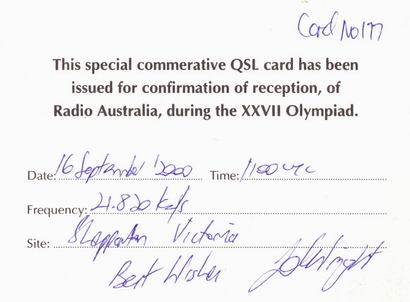 Card No 177
This special commerative QSL card has been
issued for confirmation of reception, of
Radio Australia, during the XXVII Olympiad.
Date: 16 September 2000 Time: 1100 UTC
Frequency: 21.820 Kc/s
Site: Shepparton Victoria
Best Wishes